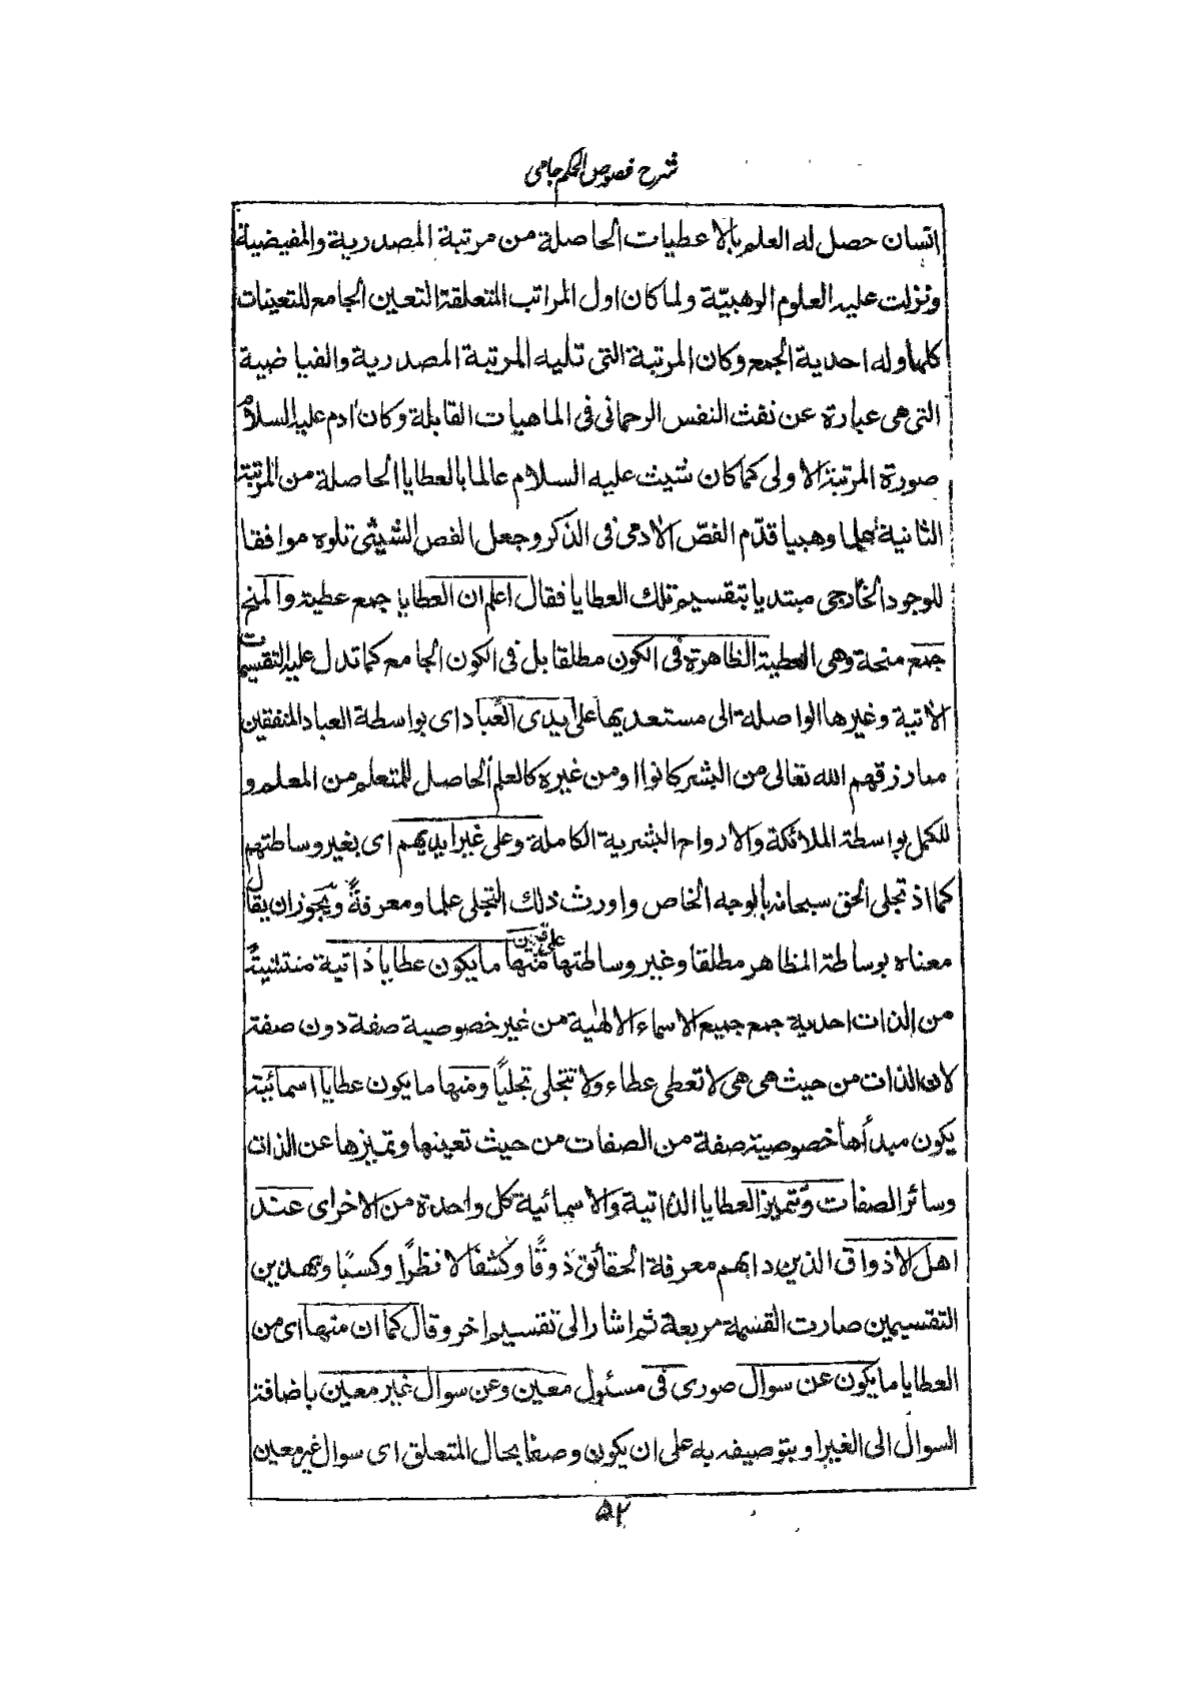 شرح فصوص الحكم جامى
انسان حصل له العلم بالاعطيات الحاصلة من مرتبة المصدرية والمفيضية
ونزلت عليه العلوم الوهبيّة ولما كان اول المراتب المتعلقة التعين الجامع للتعينات
كلها وله احدية الجمع وكان المرتبة التى تليه المرتبة المصدرية والفياضية
التى هى عبارة عن نفث النفس الرحمانى فى الماهيات القابلة وكان ادم عليه السلام
صورة المرتبة الاولى كما كان شيث عليه السلام عالما بالعطايا الحاصلة من المرتبة
الثانية وهبيا قدّم الفصّ الادمى فى الذكر وجعل الفص الشيثى تلوه موافقا
للوجود الخارجى مبتديا بتقسيم تلك العطايا فقال اعلم ان العطايا جمع عطية والمنح
جمع منحة وهى العطية الظاهرة فى الكون مطلقا بل فى الكون الجامع كما تدل عليه التقسيمات
الاتية وغيرها الواصلة الى مستعديها على ايدى العباد اى بواسطة العباد المنفقين
مما رزقهم الله تعالى من البشر كانوا او من غيره كالعلم الحاصل للمتعلم من المعلم و
للكمل بواسطة الملائكة والارواح البشرية الكاملة وعلى غير ايديهم اى بغير وساطتهم
كما اذ تجلى الحق سبحانه بالوجه الخاص واورث ذلك التجلى علما ومعرفةً ويجوز ان يقال
معناه بوساطة المظاهر مطلقا وغير وساطتها على قسمين منها ما يكون عطايا ذاتية منتشيةً
من الذات احدية جمع جميع الاسماء الالهية من غير خصوصية صفة دون صفة
لان الذات من حيث هى هى لا تعطى عطاء ولا تتجلى تجليًا ومنها ما يكون عطايا اسمائية
يكون مبدأها خصوصية صفة من الصفات من حيث تعينها وتميزها عن الذات
وسائر الصفات وتتميز العطايا الذاتية والاسمائية كل واحدة من الاخراى عند
اهل الاذواق الذين دابهم معرفة الحقائق ذوقًا وكشفا لا نظرًا وكسبًا وبهذين
التقسيمين صارت القسمة مربعة ثم اشار الى تقسيم اخر وقال كما ان منها اى من
العطايا ما يكون عن سوال صورى فى مسئول معين وعن سوال غير معين باضافة
السوال الى الغير او بتوصيفه به على ان يكون وصفا بحال المتعلق اى سوال غير معين
۵۲